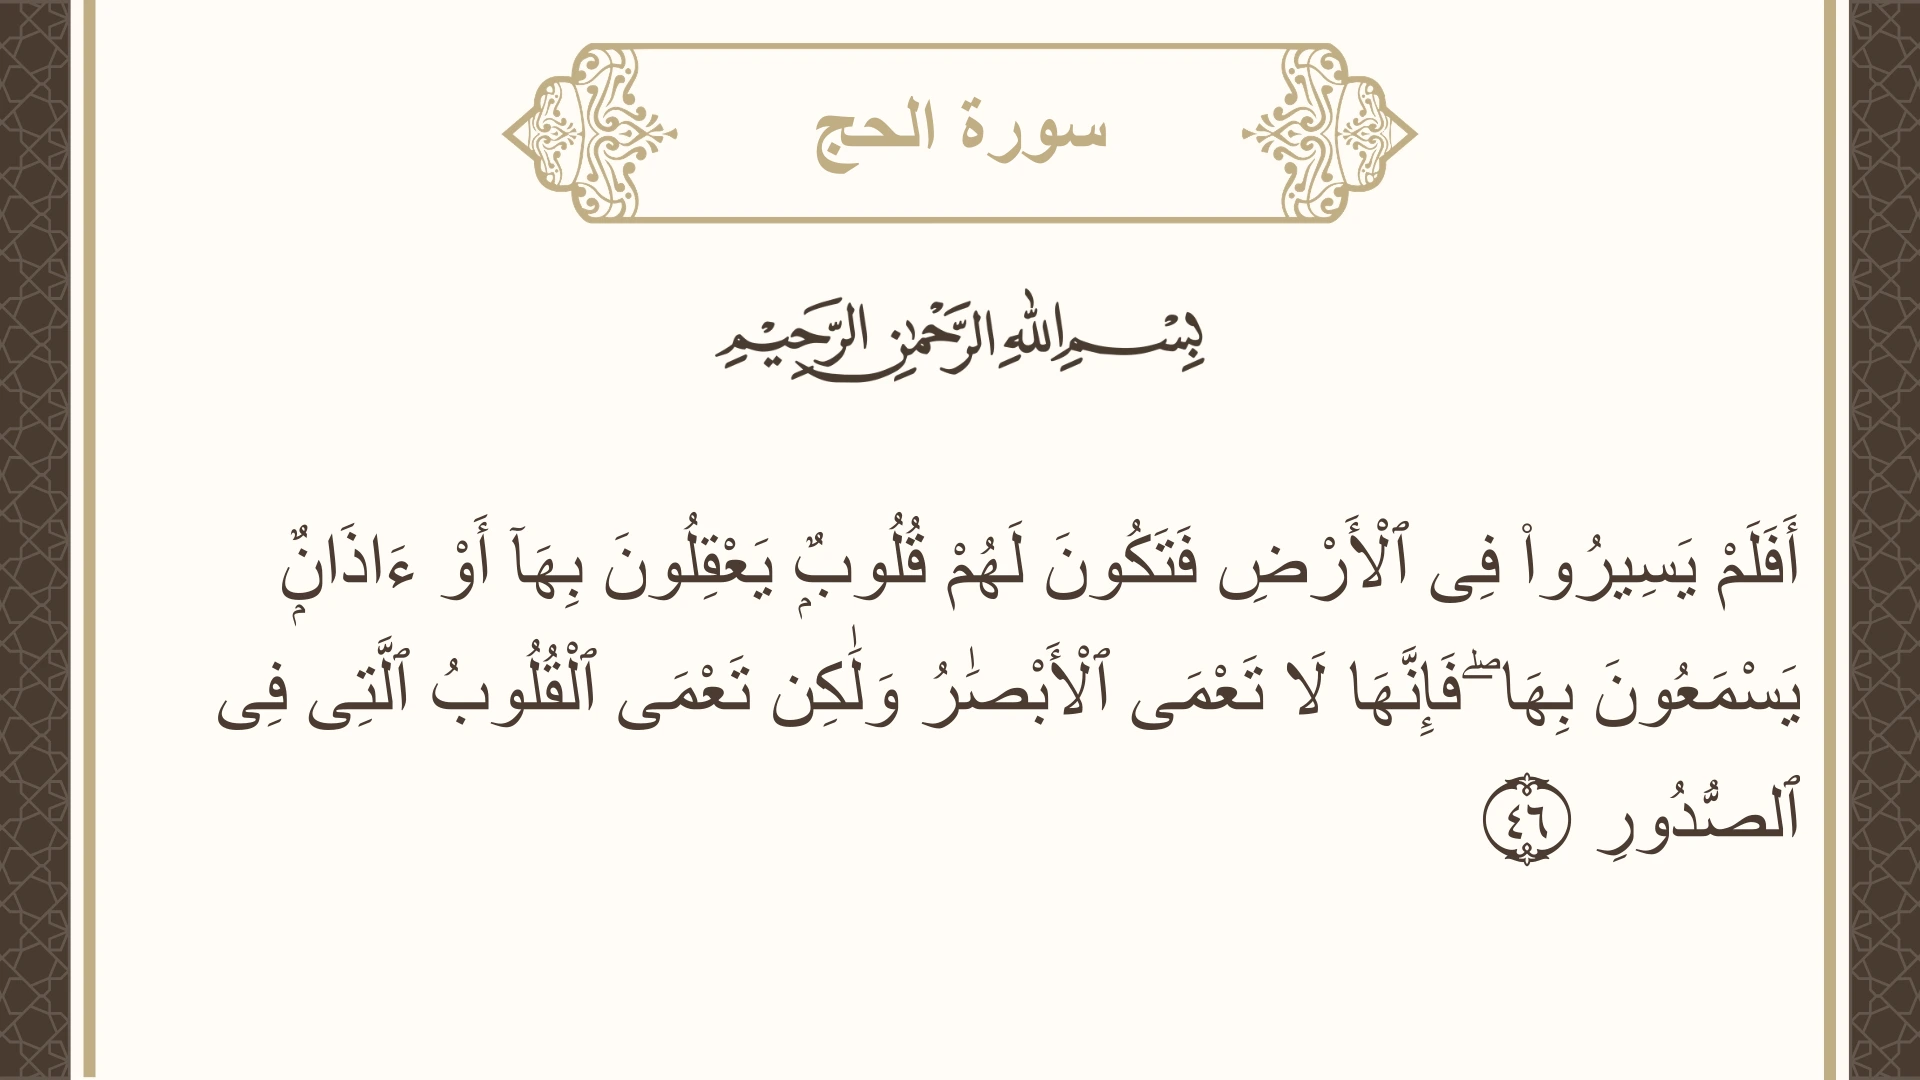 سورة الحج
بِسْمِ اللهِ الرَّحْمٰنِ الرَّحِيْمِ
أَفَلَمْ يَسِيرُوا۟ فِى ٱلْأَرْضِ فَتَكُونَ لَهُمْ قُلُوبٌۭ يَعْقِلُونَ بِهَآ أَوْ ءَاذَانٌۭ
يَسْمَعُونَ بِهَا ۖ فَإِنَّهَا لَا تَعْمَى ٱلْأَبْصَـٰرُ وَلَـٰكِن تَعْمَى ٱلْقُلُوبُ ٱلَّتِى فِى
ٱلصُّدُورِ ٤٦